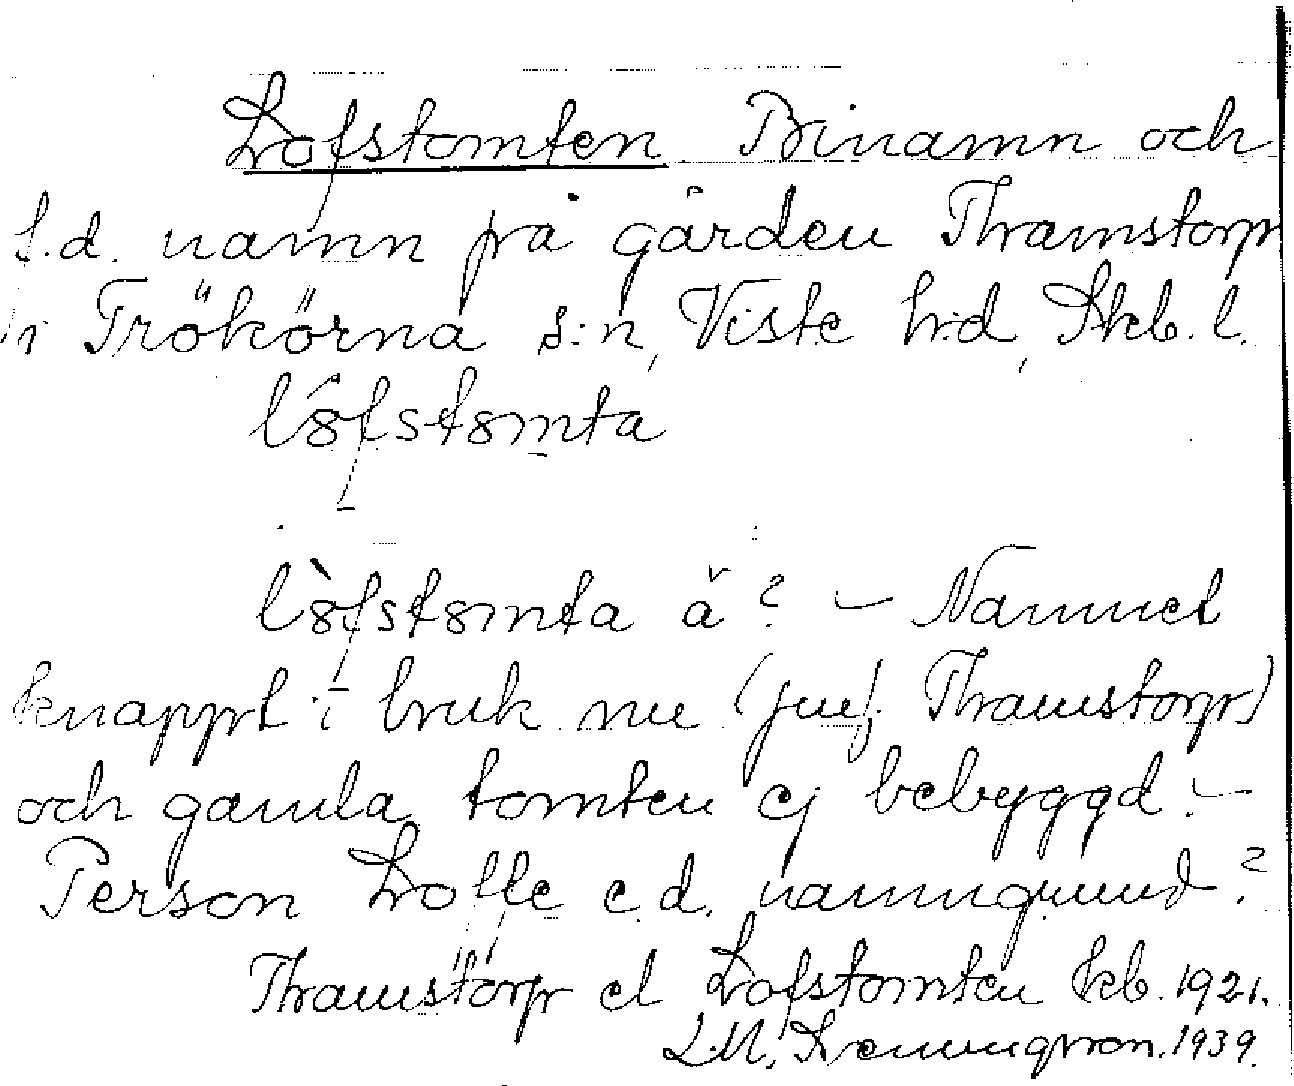 Lofstomten. Binamn och
f.d. namn på gården Thramstorp
i Trökörna s:n, Viste h:d, Skb. l.
lôfstomta
lòfstomta ǎ? – Namnet
knappt i bruk nu (jmf. Thramstorp)
och gamla tomten ej bebyggd. –
Person Loffe e.d. namngrund?
Thramstorp el Lofstomten kb. 1921.
L.M. 1939.